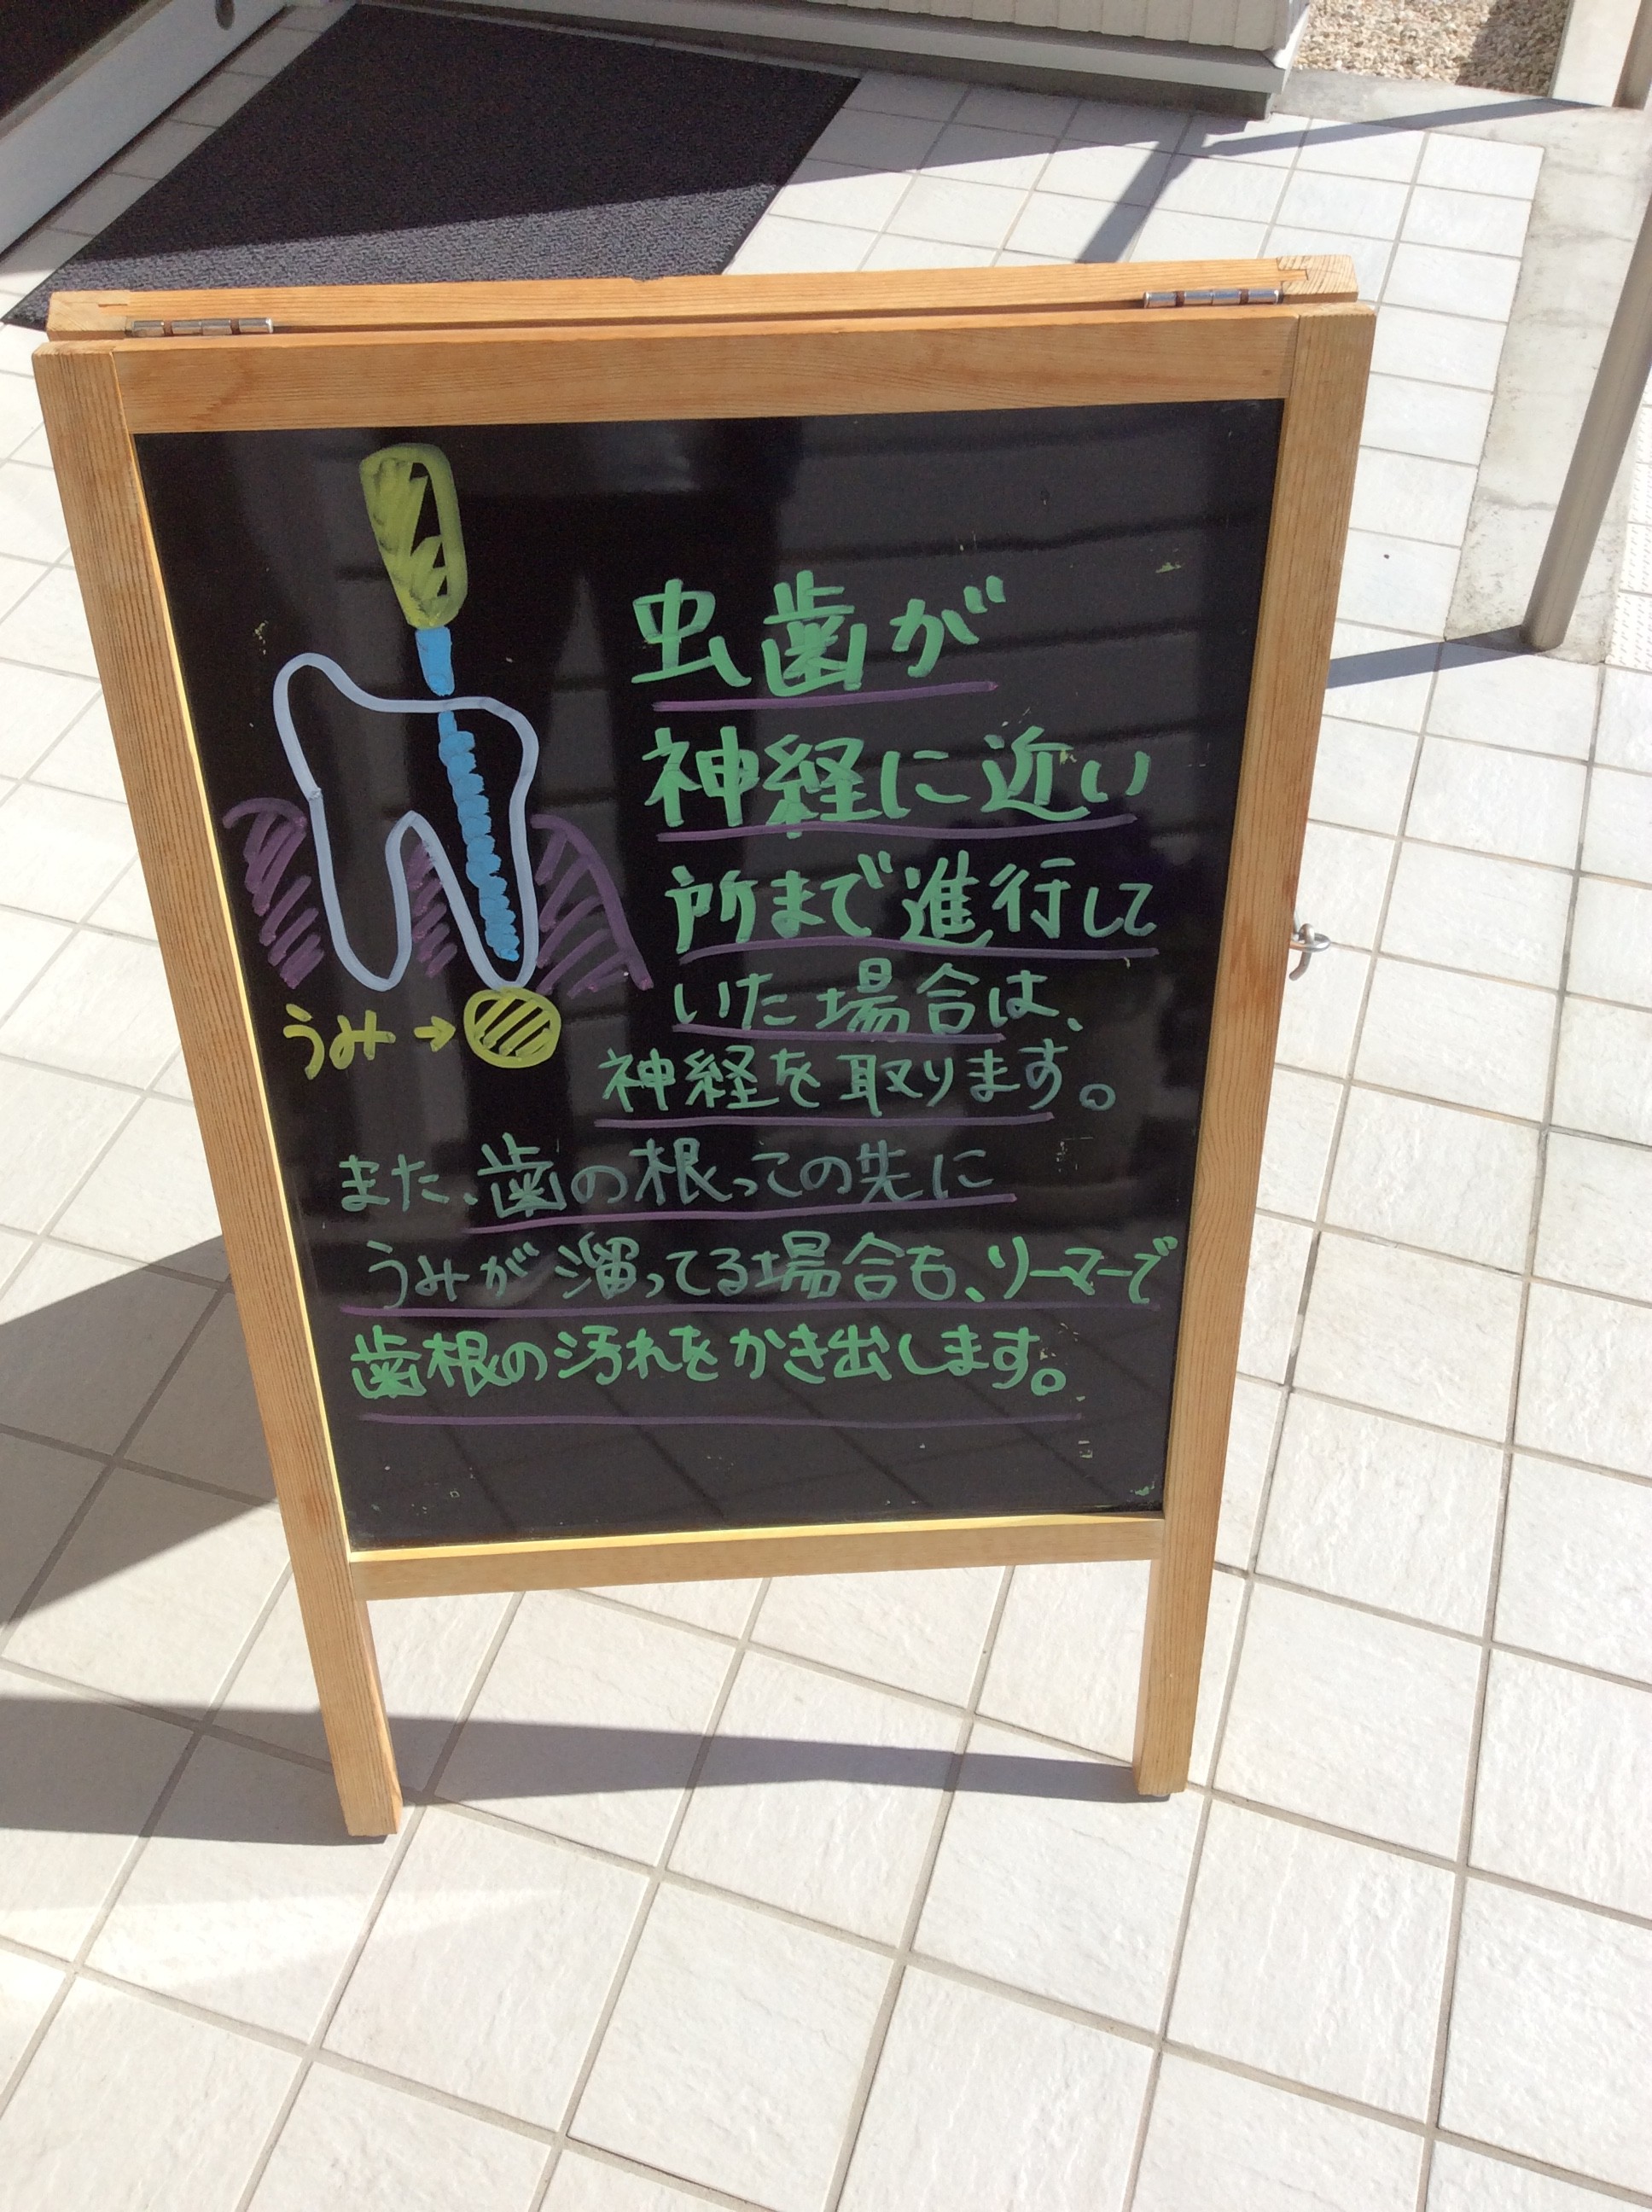 虫歯が
神経に近い
所まで進行して
いた場合は、
うみ→
神経を取ります。
また、歯の根っこの先に
うみが溜ってる場合も、リーマーで
歯根の汚れをかき出します。